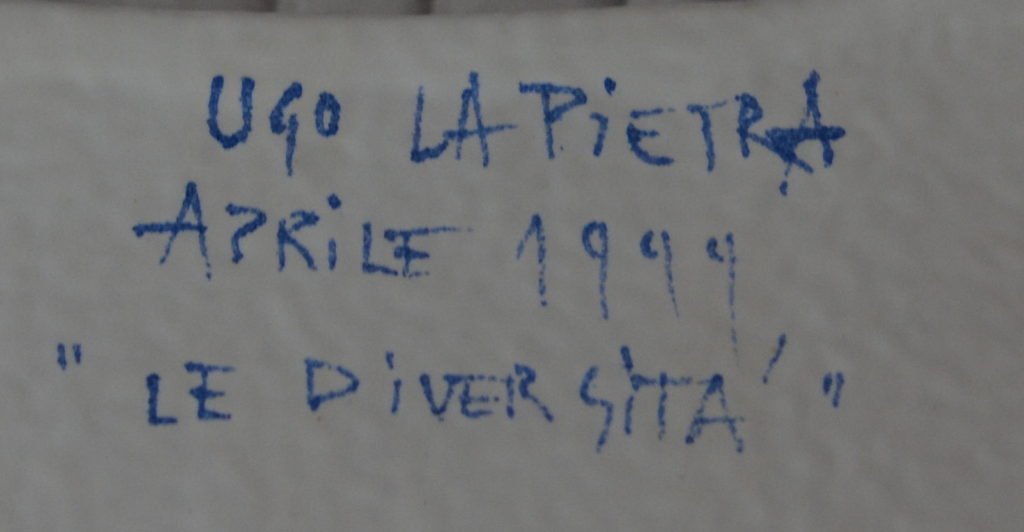 UGO LA PiETRA
APRiLE 1999
" LE DiVERSiTA' "